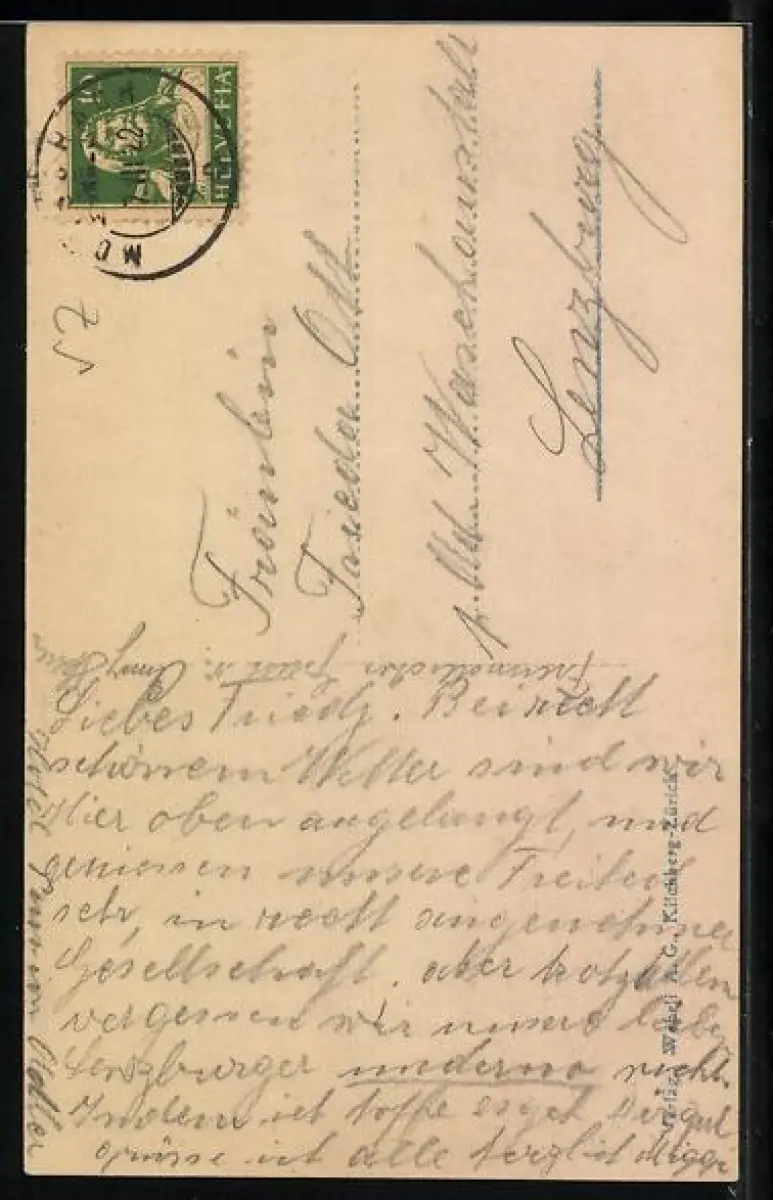 10
HELVETIA
Fräulein
Frieda Ott
Lenzburg
Liebes Friedy. Bei recht
schönem Wetter sind wir
hier oben angelangt, und
geniessen unsere Freiheit
sehr, in recht angenehmer
Gesellschaft. aber trotz allem
vergessen wir unsere lieben
Lenzburger nicht.
Indem ich hoffe es geh Dir gut
grüsse ich alle herzlich Miggi
Verlag Wehrli A.G., Kilchberg-Zürich